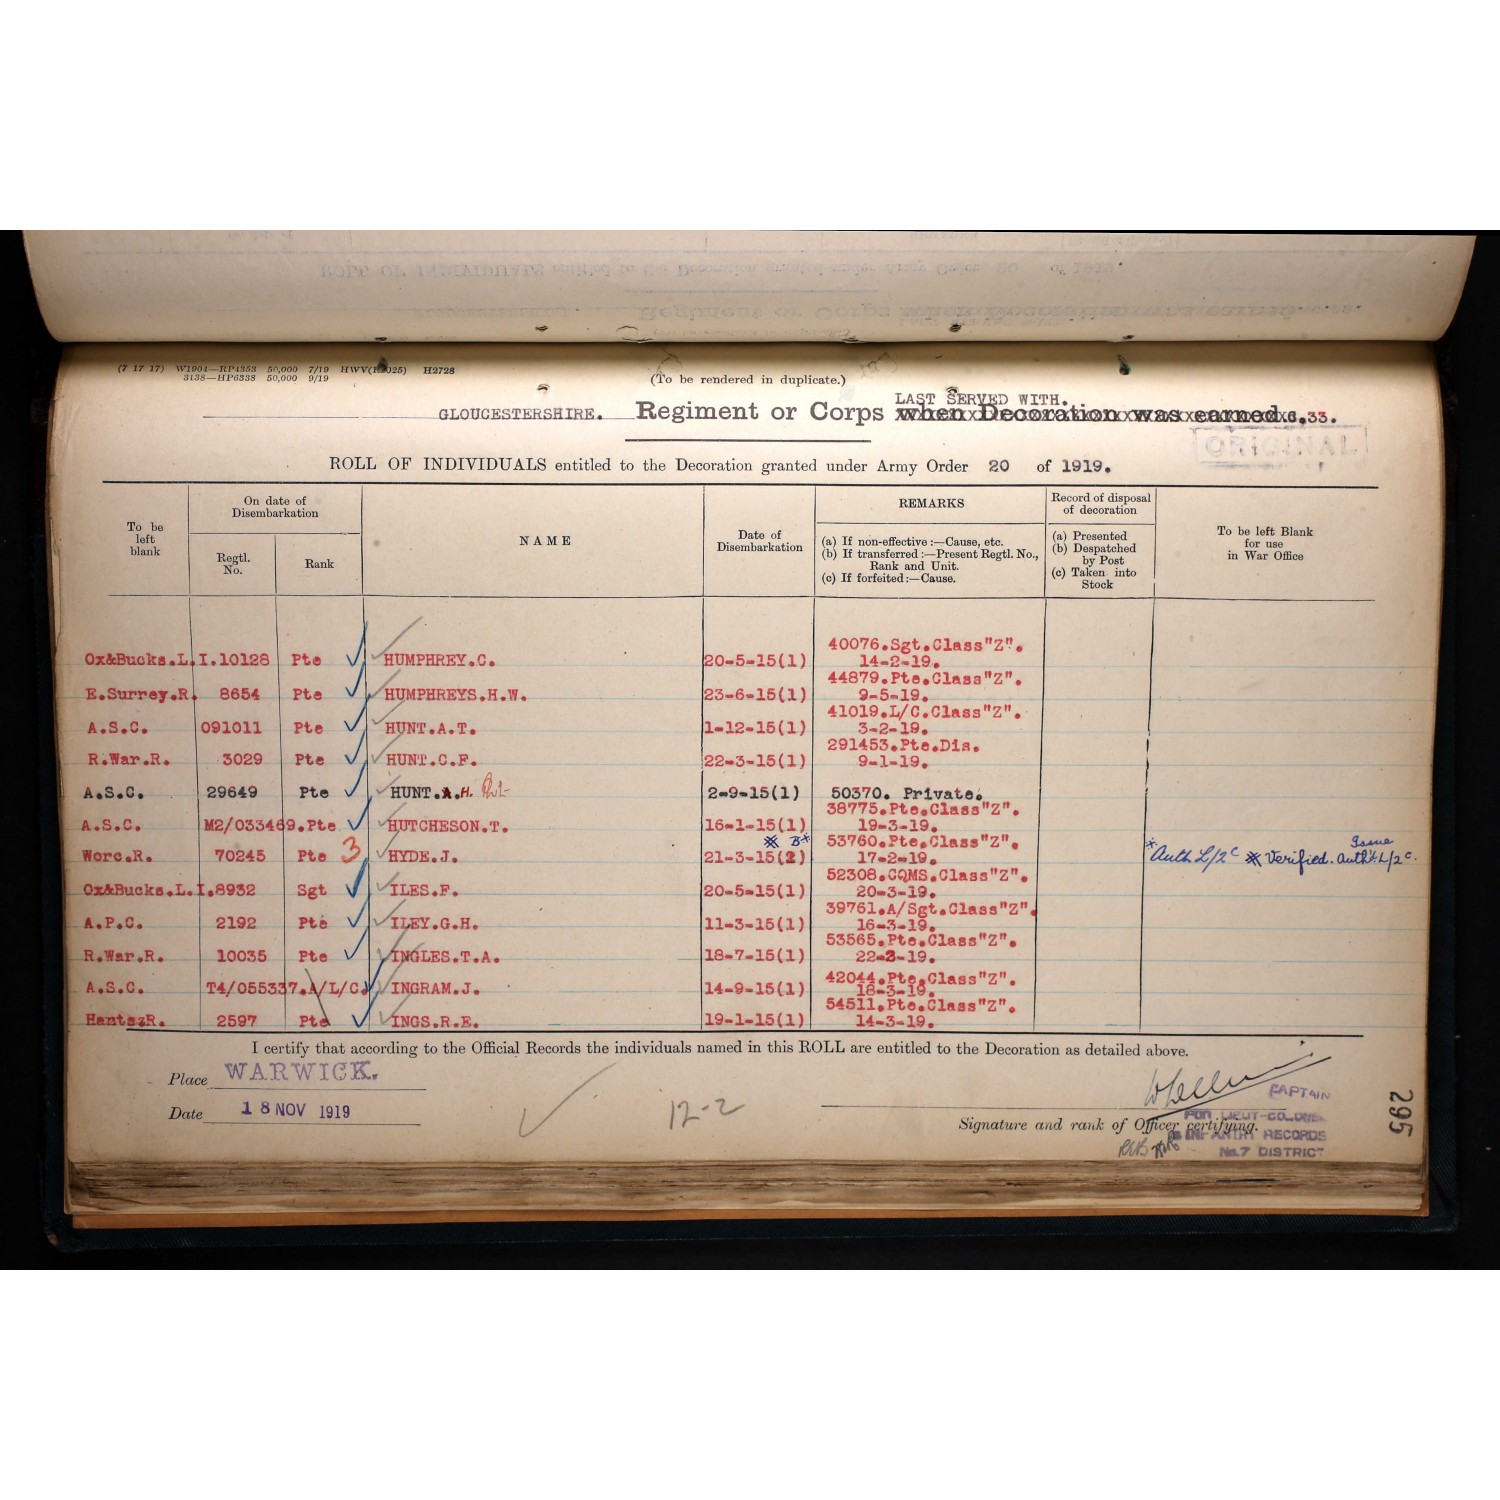 (7 17 17) W1904—RP4353 50,000 7/19 HWV(R2025) H2728
3138—HP6338 50,000 9/19
(To be rendered in duplicate.)
LAST SERVED WITH.
GLOUCESTERSHIRE. Regiment or Corps when Decoration was earned. C.33.
ORIGINAL
ROLL OF INDIVIDUALS entitled to the Decoration granted under Army Order 20 of 1919.
To be left blank
On date of Disembarkation
Regtl. No.
Rank
NAME
Date of Disembarkation
REMARKS
(a) If non-effective :—Cause, etc.
(b) If transferred :—Present Regtl. No., Rank and Unit.
(c) If forfeited :—Cause.
Record of disposal of decoration
(a) Presented
(b) Despatched by Post
(c) Taken into Stock
To be left Blank for use in War Office
40076.Sgt.Class"Z".
Ox&Bucks.L.I.10128 Pte HUMPHREY.C. 20-5-15(1) 14-2-19.
44879.Pte.Class"Z".
E.Surrey.R. 8654 Pte HUMPHREYS.H.W. 23-6-15(1) 9-5-19.
41019.L/C.Class"Z".
A.S.C. 091011 Pte HUNT.A.T. 1-12-15(1) 3-2-19.
291453.Pte.Dis.
R.War.R. 3029 Pte HUNT.C.F. 22-3-15(1) 9-1-19.
A.S.C. 29649 Pte HUNT.A.H. 2-9-15(1) 50370. Private.
38775.Pte.Class"Z".
A.S.C. M2/033469.Pte HUTCHESON.T. 16-1-15(1) 19-3-19.
53760.Pte.Class"Z".
Worc.R. 70245 Pte 3 HYDE.J. 21-3-15(2) 17-2-19. Auth L/2c Verified. Issue Auth L/2c.
52308.CQMS.Class"Z".
Ox&Bucks.L.I.8932 Sgt ILES.F. 20-5-15(1) 20-3-19.
39761.A/Sgt.Class"Z".
A.P.C. 2192 Pte ILEY.G.H. 11-3-15(1) 16-3-19.
53565.Pte.Class"Z".
R.War.R. 10035 Pte INGLES.T.A. 18-7-15(1) 22-3-19.
42044.Pte.Class"Z".
A.S.C. T4/055337.A/L/C. INGRAM.J. 14-9-15(1) 18-3-19.
54511.Pte.Class"Z".
Hants.R. 2597 Pte INGS.R.E. 19-1-15(1) 14-3-19.
I certify that according to the Official Records the individuals named in this ROLL are entitled to the Decoration as detailed above.
Place WARWICK.
Date 18 NOV 1919
12-2
CAPTAIN
FOR LIEUT-COLONEL
Signature and rank of Officer certifying.
INFANTRY RECORDS
No.7 DISTRICT
295